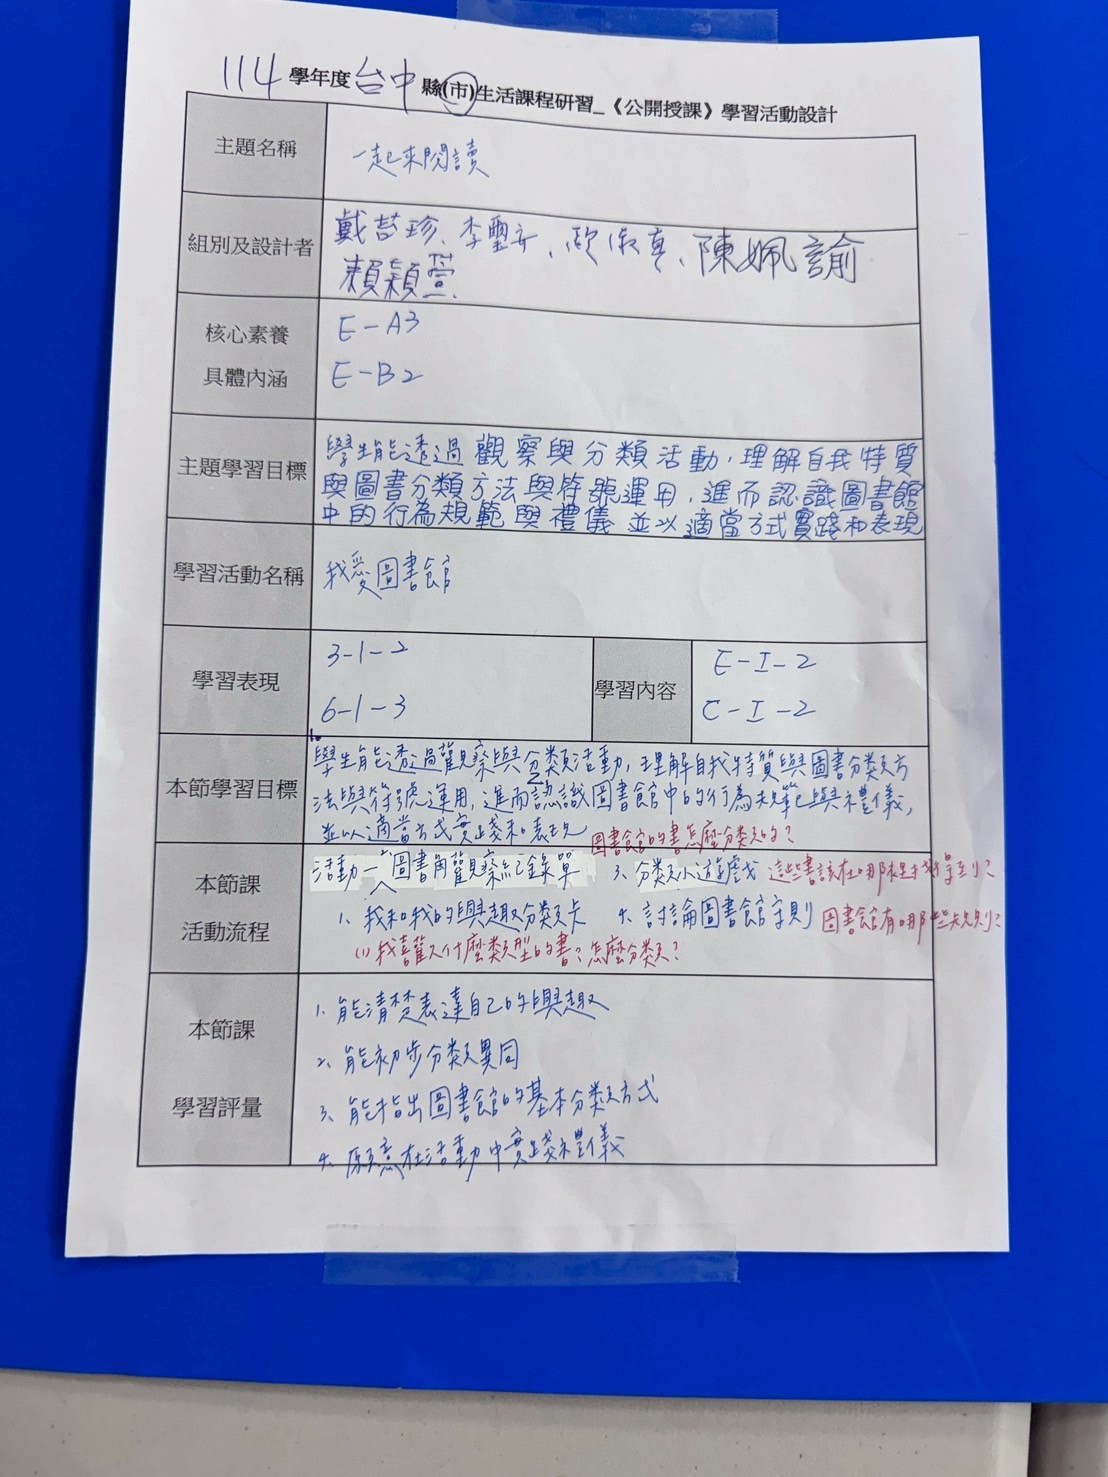 114學年度台中縣(市)生活課程研習_《公開授課》學習活動設計
主題名稱
一起來閱讀
組別及設計者
戴苔珍、李璽卉、歐淑真、陳姵諭
賴穎萱
核心素養
具體內涵
E-A3
E-B2
主題學習目標
學生能透過觀察與分類活動,理解自我特質
與圖書分類方法與符號運用,進而認識圖書館
中的行為規範與禮儀並以適當方式實踐和表現
學習活動名稱
我愛圖書館
學習表現
3-1-2
6-1-3
學習內容
E-I-2
C-I-2
本節學習目標
學生能透過觀察與分類活動,理解自我特質與圖書分類方
法與符號運用,進而認識圖書館中的行為規範與禮儀,
並以適當方式實踐和表現
圖書館的書怎麼分類的?
本節課
活動流程
活動一 2.圖書角觀察紀錄單 3、分類小遊戲 這些書該在哪裡找得到?
1、我和我的興趣分類卡 4、討論圖書館守則 圖書館有哪些規則?
(1)我喜歡什麼類型的書?怎麼分類?
本節課
學習評量
1、能清楚表達自己的興趣
2、能初步分類異同
3、能指出圖書館的基本分類方式
4、願意在活動中實踐禮儀